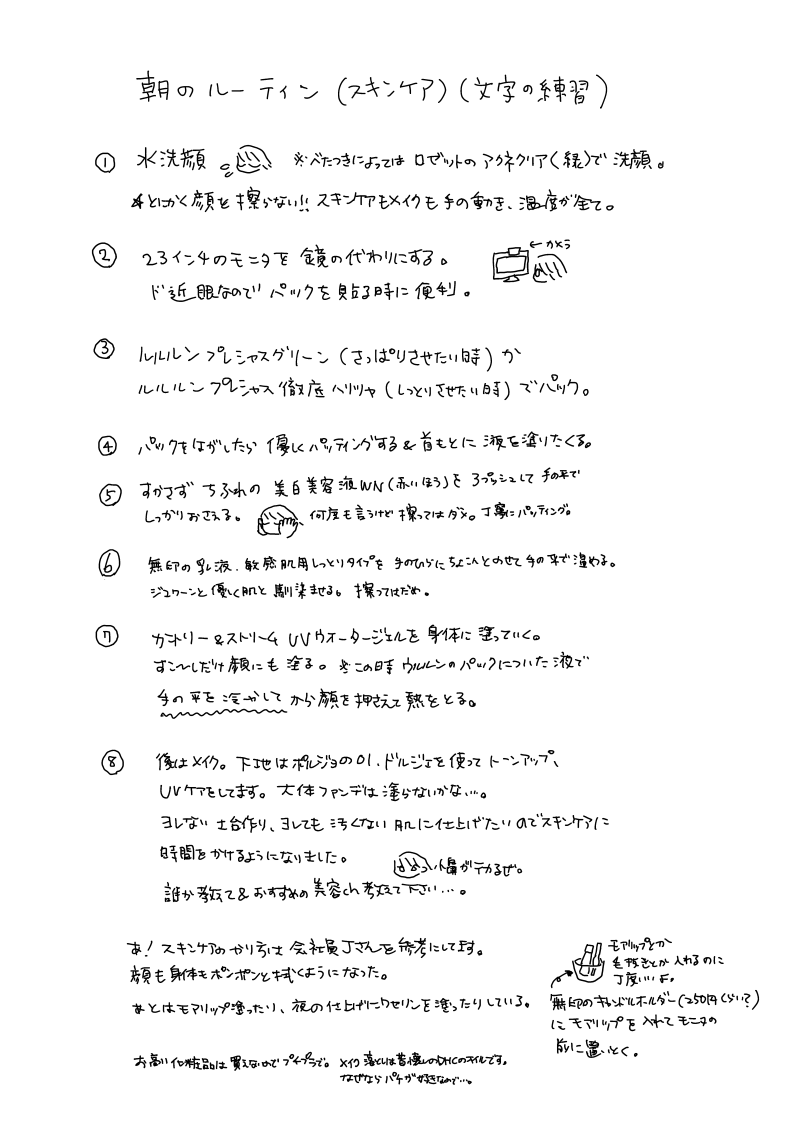 朝のルーティン (スキンケア) (文字の練習)
① 水洗顔 ※べたつきによっては ロゼットの アクネクリア(緑)で 洗顔。
とにかく顔を擦らない!! スキンケアもメイクも手の動き、温度が全て。
② 23インチのモニタを 鏡の代わりにする。
←カメラ
ド近眼なので パックを貼る時に便利。
③ ルルルン プレシャスグリーン (さっぱりさせたい時) か
ルルルン プレシャス 徹底ハリツヤ (しっとりさせたい時) でパック。
④ パックをはがしたら 優しくパッティングする & 首もとに 液を塗りたくる。
⑤ すかさず ちふれの 美白美容液WN(赤いほう)を 3プッシュして 手の平で
しっかりおさえる。 何度も言うけど 擦ってはダメ。丁寧にパッティング。
⑥ 無印の乳液、敏感肌用しっとりタイプを 手のひらにちょこんとのせて 手の平で温める。
ジュワーンと優しく肌と馴染ませる。擦ってはだめ。
⑦ カントリー&ストリーム UVウォータージェルを 身体に塗っていく。
すこ〜しだけ顔にも塗る。※この時 ウルルンのパックについた液で
手の平を冷やして から顔を押さえて熱をとる。
⑧ 後はメイク。下地はポルジョの01、ドルジェを使って トーンアップ、
UVケアをしてます。大体ファンデは塗らないかな…。
ヨレない 土台作り、ヨレても 汚くない 肌に仕上げたいのでスキンケアに
時間をかけるようになりました。
小鼻がテカるぜ。
誰か教えて&おすすめの美容ch教えて下さい…。
あ! スキンケアのやり方は 会社員Jさんを参考にしてます。
顔も身体もポンポンと拭くようになった。
あとはモアリップ塗ったり、夜の仕上げにワセリンを塗ったりしている。
モアリップとか
毛抜きとか入れるのに
丁度いいよ。
無印のキャンドルホルダー(250円くらい?)
にモアリップを入れてモニタの
前に置いとく。
お高い化粧品は買えないのでプチプラで。メイク落としは昔懐しのDHCのオイルです。
なぜならパチが好きなので…。